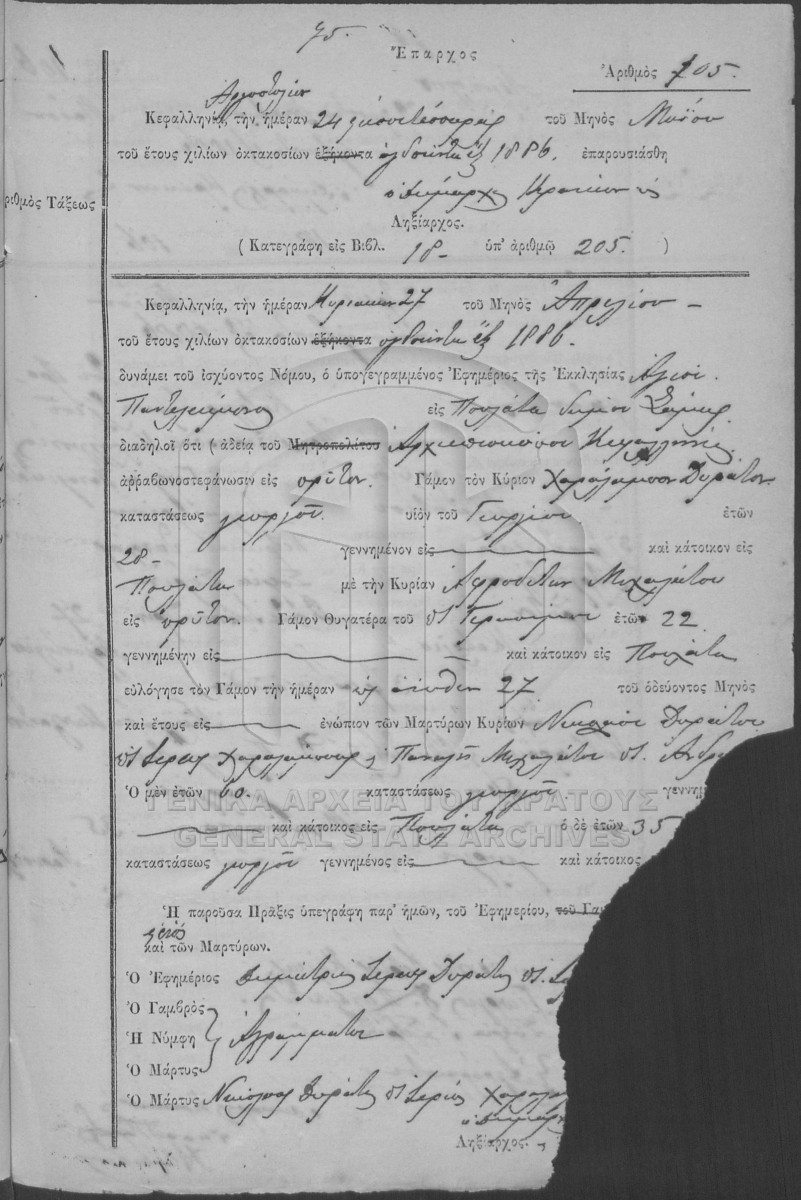 75.
Ἔπαρχος
Ἀριθμὸς 205.
Ἀργοστόλιον
Κεφαλληνίᾳ, τὴν ἡμέραν 24 εἰκοσιτέσσαρες τοῦ Μηνὸς Μαΐου
τοῦ ἔτους χιλίων ὀκτακοσίων ἑξήκοντα ὀγδοήκοντα ἓξ 1886. ἐπαρουσιάσθη
ὁ Δήμαρχος
ριθμὸς Τάξεως
Ληξίαρχος.
( Κατεγράφη εἰς Βιβλ. 18 - ὑπ' ἀριθμῷ 205. )
Κεφαλληνίᾳ, τὴν ἡμέραν Κυριακὴν 27 τοῦ Μηνὸς Ἀπριλίου -
τοῦ ἔτους χιλίων ὀκτακοσίων ἑξήκοντα ὀγδοήκοντα ἓξ 1886.
δυνάμει τοῦ ἰσχύοντος Νόμου, ὁ ὑπογεγραμμένος Ἐφημέριος τῆς Ἐκκλησίας Ἁγίου
Παντελεήμονος εἰς Πουλάτα δήμου Σάμης
διαδηλοῖ ὅτι ( ἀδείᾳ τοῦ Μητροπολίτου Ἀρχιεπισκόπου Κεφαλληνίας
ἀῤῥαβωνοστεφάνωσιν εἰς πρῶτον. Γάμον τὸν Κύριον Χαράλαμπον Δυράτον.
καταστάσεως γεωργοῦ υἱὸν τοῦ Γεωργίου. ἐτῶν
28 - γεννημένον εἰς καὶ κάτοικον εἰς
Πουλάτα μὲ τὴν Κυρίαν Ἀφροδίτην Μιχαλάτου
εἰς πρῶτον. Γάμον Θυγατέρα τοῦ Γερασίμου ἐτῶν 22
γεννημένην εἰς καὶ κάτοικον εἰς Πουλάτα
εὐλόγησε τὸν Γάμον τὴν ἡμέραν ὡς ἄνωθεν 27 τοῦ ὁδεύοντος Μηνὸς
καὶ ἔτους εἰς ἐνώπιον τῶν Μαρτύρων Κυρίων Νικολάου Δυράτου
Χαραλάμπους & Παναγῆ Μιχαλάτου Ἀνδρ
Ὁ μὲν ἐτῶν 60. καταστάσεως γεωργοῦ γεννημ
καὶ κάτοικος εἰς Πουλάτα ὁ δὲ ἐτῶν 35
ΓΕΝΙΚΑ ΑΡΧΕΙΑ ΤΟΥ ΚΡΑΤΟΥΣ
GENERAL STATE ARCHIVES
καταστάσεως γεωργοῦ γεννημένος εἰς καὶ κάτοικος
Ἡ παροῦσα Πρᾶξις ὑπεγράφη παρ' ἡμῶν, τοῦ Ἐφημερίου, τοῦ Γαμ
ἑνὸς
καὶ τῶν Μαρτύρων.
Ὁ Ἐφημέριος Δημήτριος Ἱερεὺς Δυράτος
Ὁ Γαμβρὸς
Ἡ Νύμφη Ἀγράμματοι
Ὁ Μάρτυς
Ὁ Μάρτυς Νικόλαος Δυράτος Ἱερέως Χαραλα
ὁ Δήμαρχ
Ληξίαρχος.